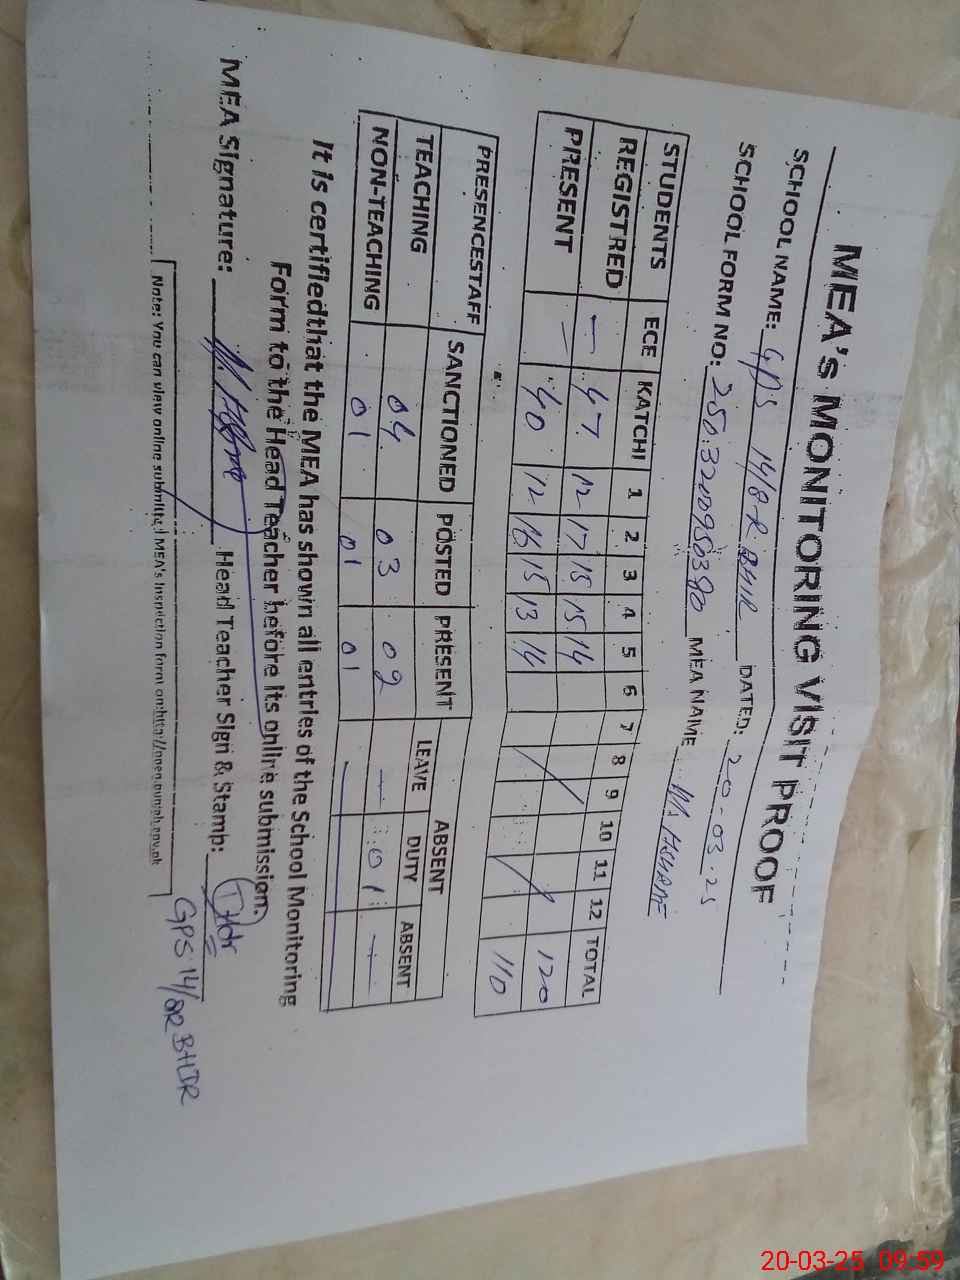 MEA's MONITORING VISIT PROOF
SCHOOL NAME: GPS 14/8-R DATED: 20-03-25
SCHOOL FORM NO: MEA NAME
STUDENTS ECE KATCHI 1 2 3 4 5 6 7 8 9 10 11 12 TOTAL
REGISTRED — 47 12 17 15 15 14 120
PRESENT — 40 12 16 15 13 14 110
PRESENCESTAFF SANCTIONED POSTED PRESENT ABSENT
LEAVE DUTY ABSENT
TEACHING 04 03 02 — 01 —
NON-TEACHING 01 01 01
It is certifiedthat the MEA has shown all entries of the School Monitoring
Form to the Head Teacher before its online submission.
MEA Signature: Head Teacher Sign & Stamp:
GPS 14/8R
Note: You can view online submitted MEA's Inspection form on
20-03-25 09:59